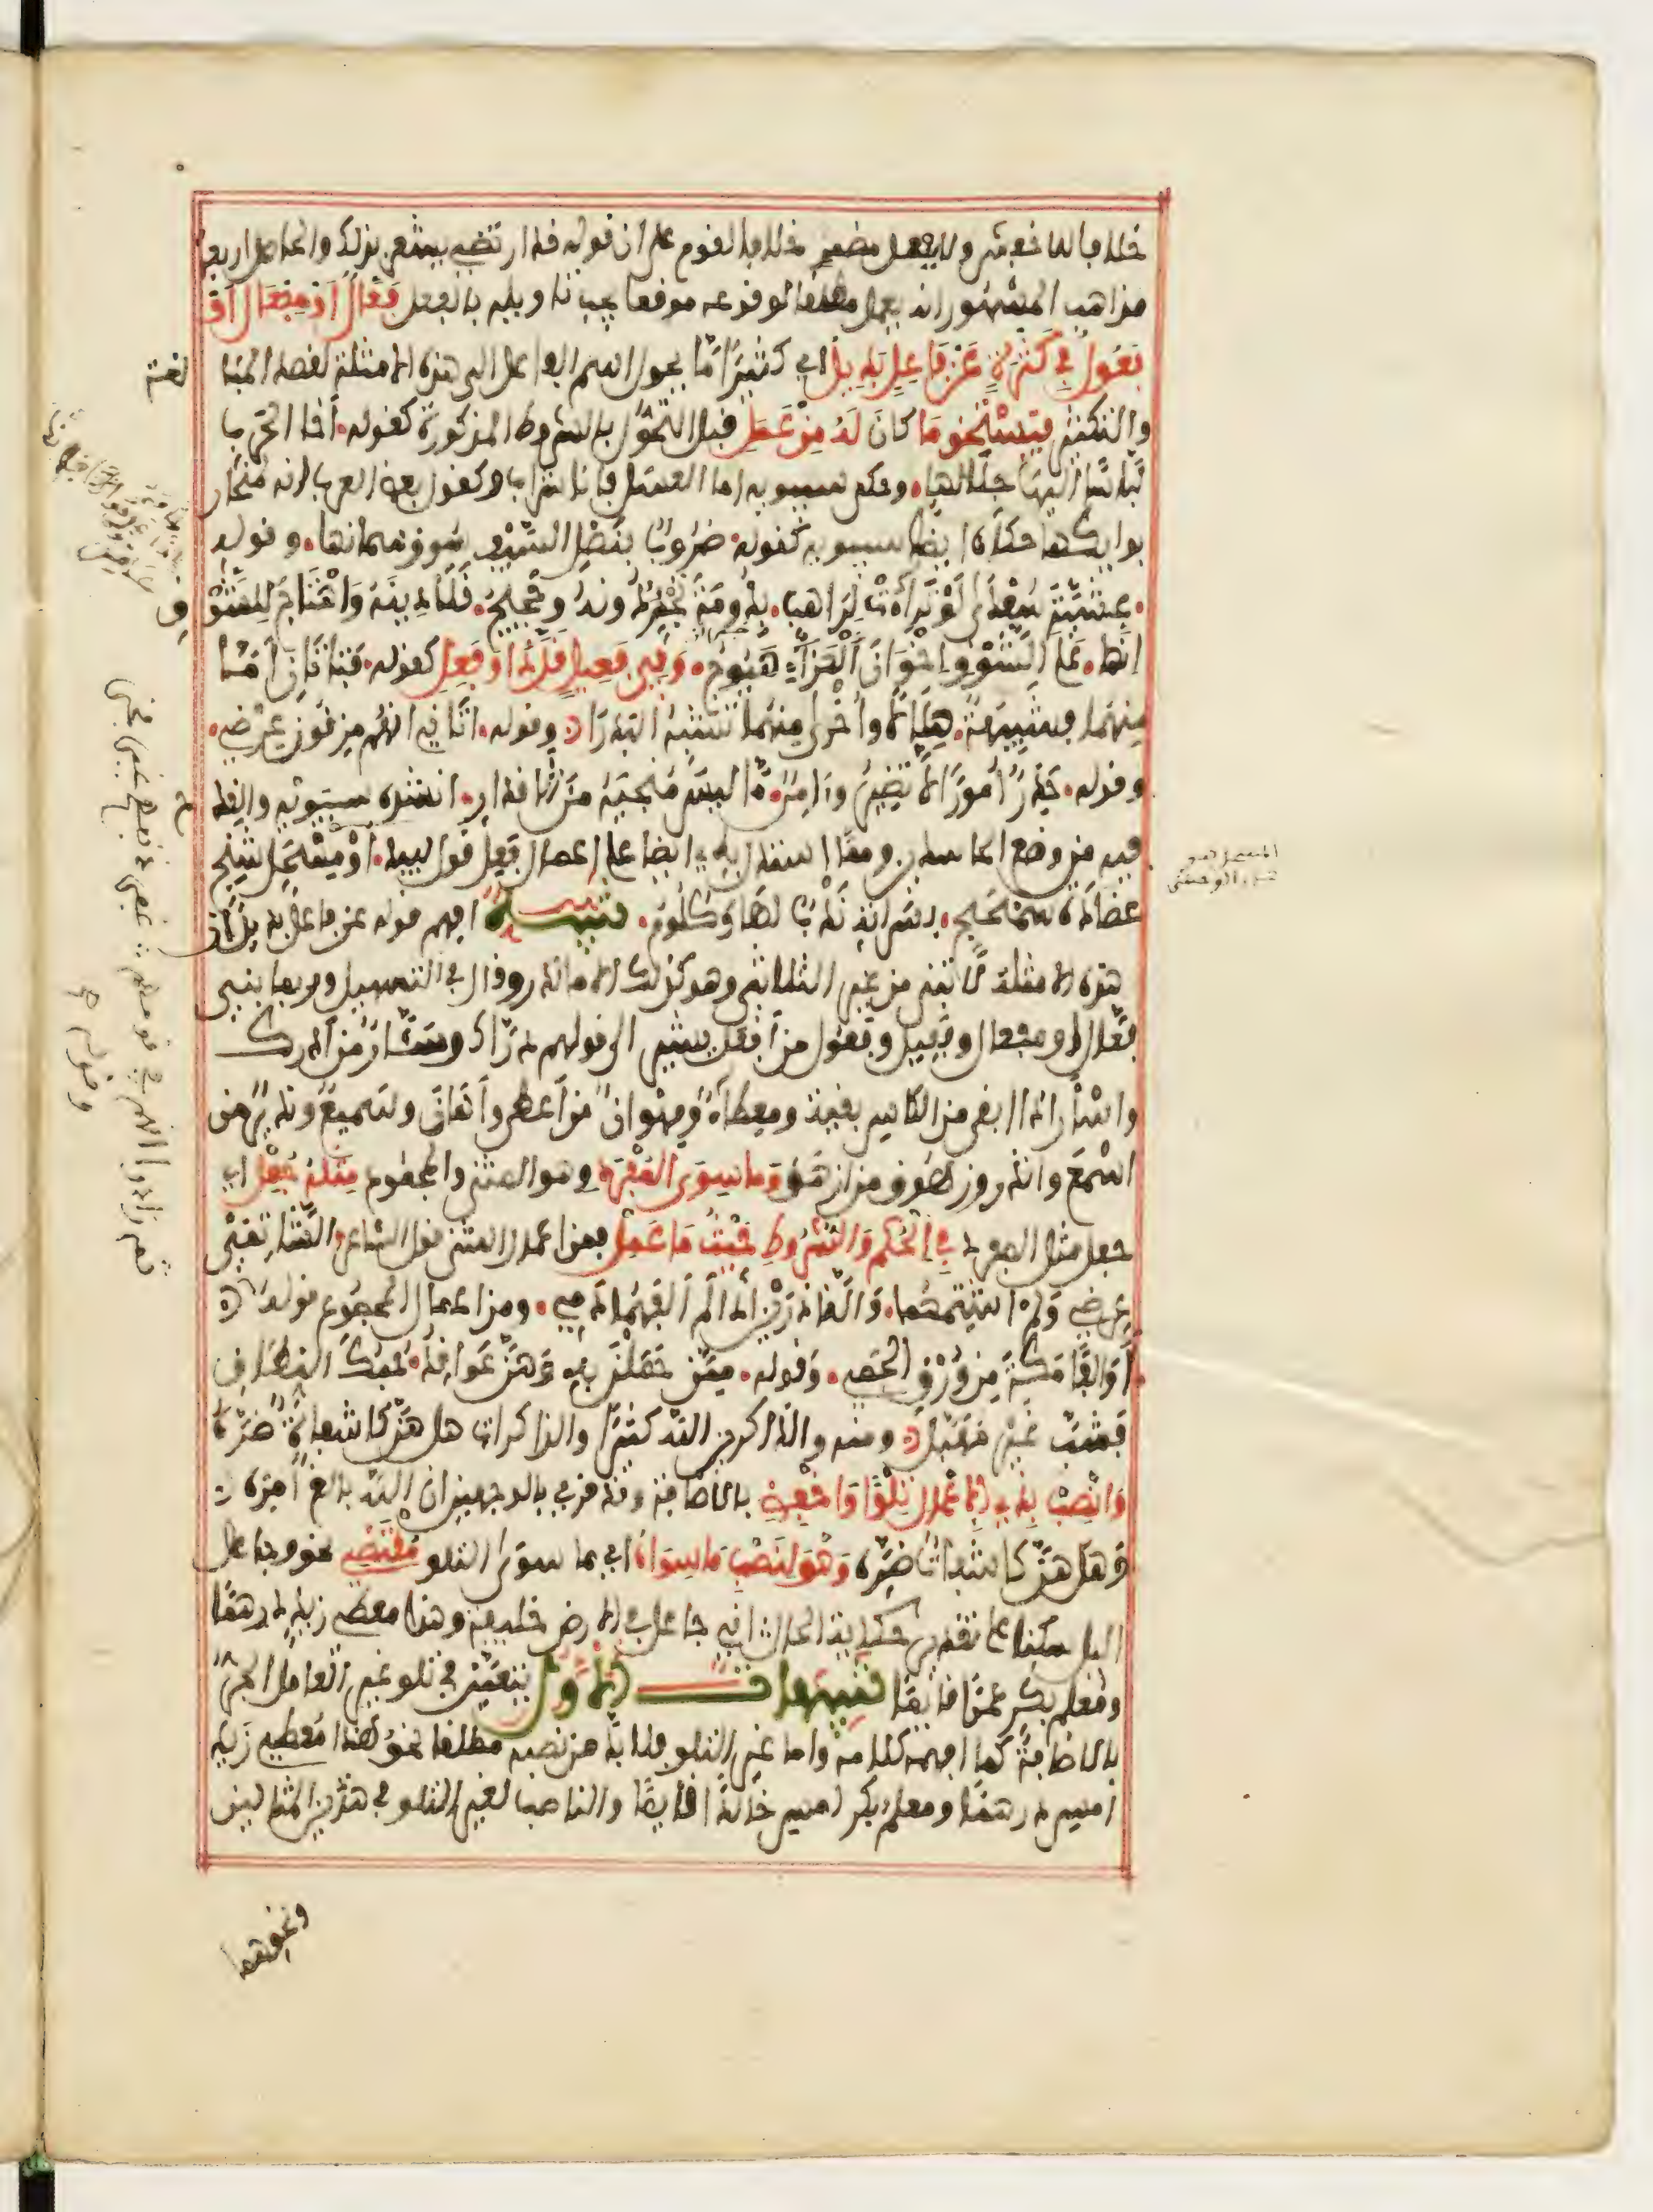 خلافا للاخفش ولا بفعل مضمر خلافا لقوم على ان قوله قد ارتضي يشعر بذلك والحاصل اربعة
مذاهب المشهور انه يعمل مطلقا لوقوعه موقعا يجب تاويله بالفعل فَعَّالٌ اَوْ مِفْعَالٌ اَوْ
فَعُولُ فِي كَثْرَةٍ عَنْ فَاعِلٍ بَدِيلُ اي كثيرًا مّا يحول اسم الفاعل الى هذه الامثلة لقصد المبالغة
والتكثير فَيَسْتَحِقُّ مَا كَانَ لَهُ مِنْ عَمَلِ قبل التحوّل بالشروط المذكورة كقوله. أخا الحرب
لبّاسًا اليها جلالها. وحكى سيبويه اما العسل فانا شراب وكقول بعض العرب انه لمنحار
بوائكها حكاه ايضًا سيبويه كقوله. ضروبٌ بنصل السيف سوق سمانها. وقوله
. عشيّة سُعْدَى لَوْ تَرَاءَتْ لِرَاهب. بدُومَةَ تجرٌ دونه وحجيج. قلا دينه واهتاج للشوق
انها. على الشوق اخوان العزاء هيوج. وَفِي فَعِيلٍ قَلَّ ذا وَفَعِلِ كقوله. فتاتان أمّا
منهما فشبيهةٌ. هلالًا وأخرى منهما تشبه البدرا وقوله. أتاني انهم مزقون عرضي.
وقوله. حَذِرٌ أمورًا لا تضير وءامنٌ. ما ليس منجيه من الاقدار. انشده سيبويه والقدح
فيه من وضع الحاسدين ومما استدل به ايضا على اعمال فَعِل قول لبيد. أوْ مِسْحَلٌ شَنِجٌ
عضادة سمحج. بسراته ندبٌ لها وكلوم. تنبيه افهم قوله عن فاعل بديل ان
هذه الامثلة لا تبنى من غير الثلاثي وهو كذلك الا ما ندر وقال في التسهيل وربما بني
فعّال ومفعال وفعيل وفعول من أفعل يشير الى قولهم درّاك وسئّار من ادرك
واسأر اذا ابقى من الكاس بقية ومعطاء ومهوان من أعطى وأهان وسميع ونذير من
اسمع وانذر وزهوق من ازهق وَمَا سِوَى المُفْرَدِ وهو المثنى والمجموع مِثْلَهُ جُعِلْ اي
جعل مثل المفرد فِي الحُكْمِ وَالشُّرُوطِ حَيْثُ مَا عَمِلْ فمن اعمال المثنى قول الشاعر الشاتمَيْ
عرضي ولم اشتمهما. والناذرين اذا لم القهما دمي. ومن اعمال المجموع قوله
أوالفًا مكة من ورق الحمي. وقوله. ممن حملن به وهن عواقد. حبك النطاق
فشب غير مهبل ومنه والذاكرين الله كثيرًا والذاكرات هل هن كاشفات ضره
وَانْصِبْ بِذِي الاعْمَالِ تِلْوًا وَاخْفِضِ بالاضافة وقد قرئ بالوجهين ان الله بالغ أمره
وهل هن كاشفات ضره وَهْوَ لِنَصْبِ مَا سِوَاهُ اي ما سوى التلو مُقْتَضِي نحو وجاعل
الليل سكنا على تقدير حكاية الحال اني جاعل في الارض خليفة وهذا معطي زيد درهما
ومعلم بكر عمرًا قائمًا تنبيهات الاول يتعيّن في تلو غير العامل الجرّ
بالاضافة كما افهمه كلامه واما غير التلو فلا بد من نصبه مطلقا نحو هذا مُعطي زيد
امس درهمًا ومعلم بكر امس خالدًا قائمًا والناصب لغير التلو في هذين المثالين
ونحوهما